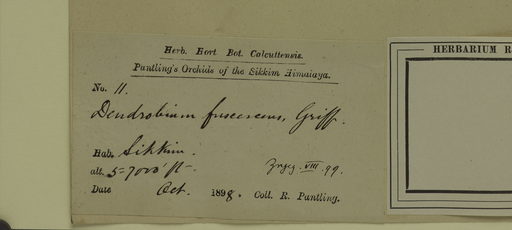 Herb. Hort. Bot. Calcuttensis.
Pantling's Orchids of the Sikkim Himalaya.
HERBARIUM R
No. 11.
Dendrobium fuscescens, Griff.
Hab. Sikkim.
alt. 5-7000' ft
VIII. 99.
Date Oct. 1898. Coll. R. Pantling.